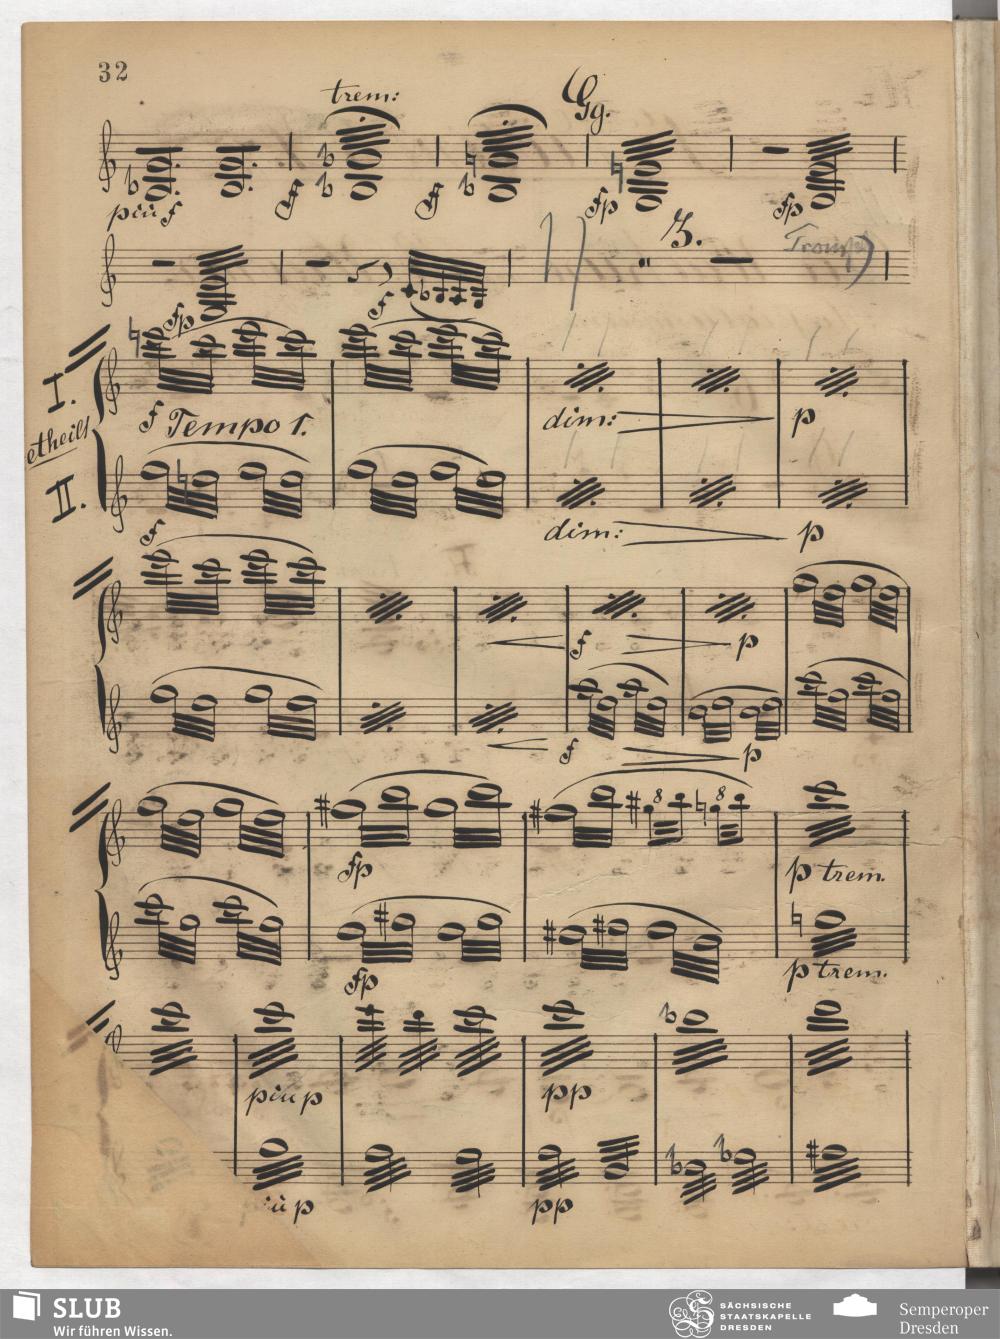 32
trem:
Gg.
più f
ff
ff
fp
fp
3.
Tromp
fp
f
I.
f Tempo 1.
dim:
p
etheilt
II.
f
dim:
p
f
p
f
p
8
8
fp
p trem.
fp
p trem.
più p
pp
iù p
pp
SLUB
Wir führen Wissen.
SÄCHSISCHE
STAATSKAPELLE
DRESDEN
Semperoper
Dresden